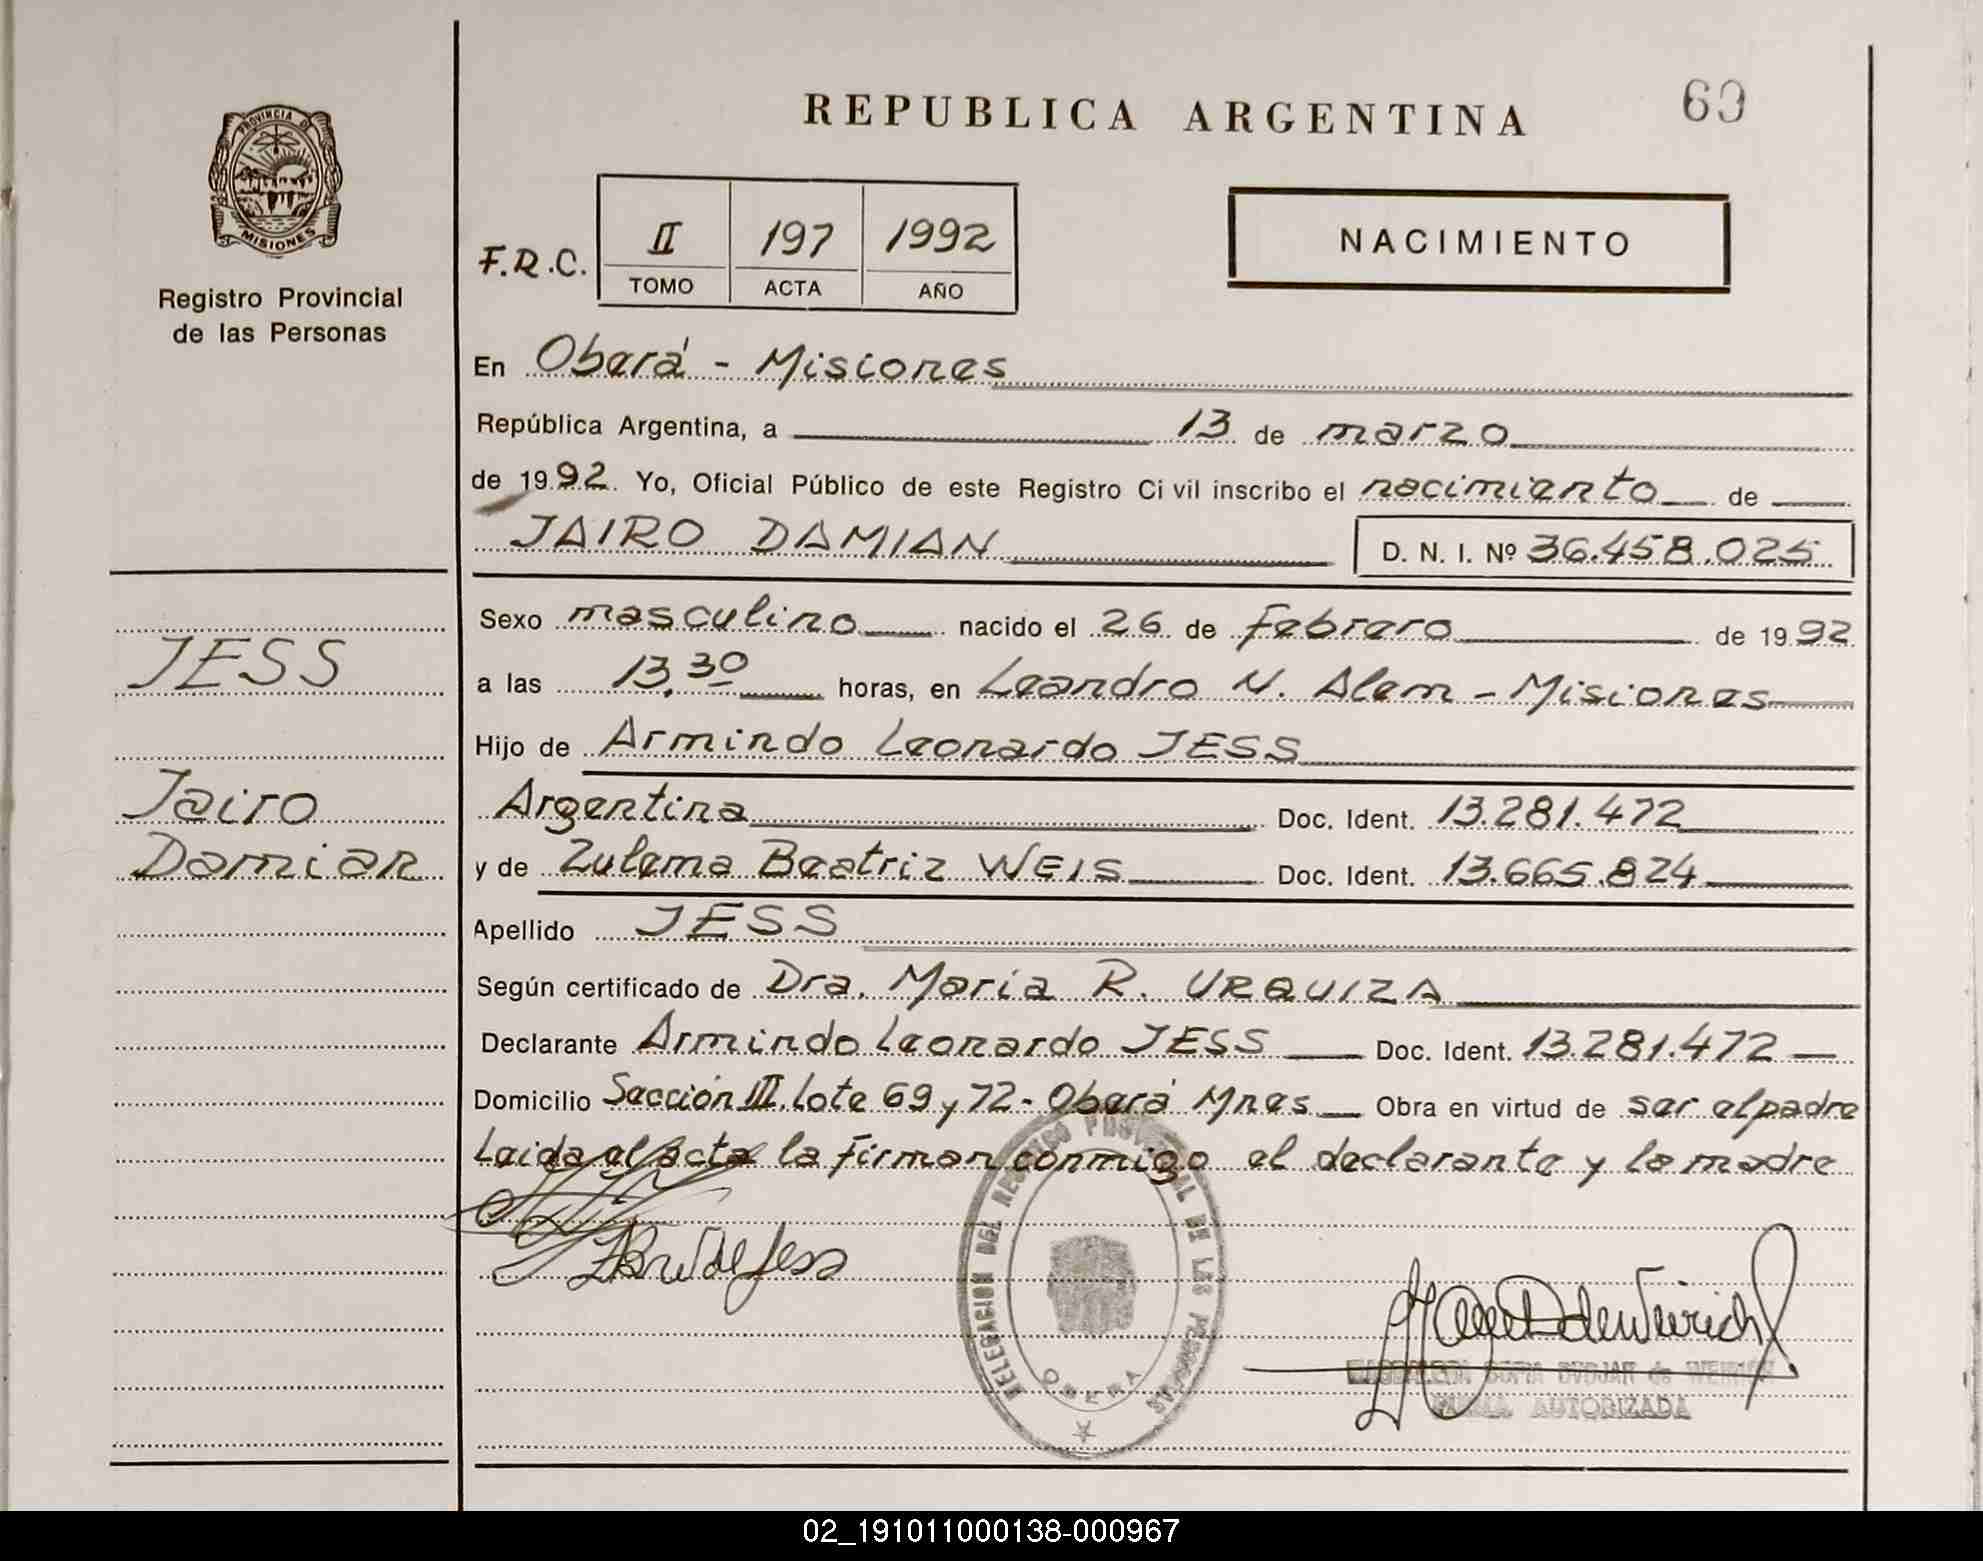 REPUBLICA ARGENTINA
69
PROVINCIA DE
MISIONES
Registro Provincial
de las Personas
F.R.C.
II 197 1992
TOMO ACTA AÑO
NACIMIENTO
En Oberá - Misiones
República Argentina, a 13 de marzo
de 1992. Yo, Oficial Público de este Registro Civil inscribo el nacimiento de
JAIRO DAMIAN D. N. I. Nº 36.458.025
JESS
Jairo
Damian
Sexo masculino nacido el 26 de Febrero de 1992
a las 13,30 horas, en Leandro N. Alem - Misiones
Hijo de Armindo Leonardo JESS
Argentina Doc. Ident. 13.281.472
y de Zulema Beatriz WEIS Doc. Ident. 13.665.824
Apellido JESS
Según certificado de Dra. María R. URQUIZA
Declarante Armindo Leonardo JESS Doc. Ident. 13.281.472
Domicilio Sección III. Lote 69 y 72 - Oberá Mnes Obra en virtud de ser el padre
Leida el acta la firman conmigo el declarante y la madre
DELEGACION DEL REGISTRO PROVINCIAL DE LAS PERSONAS
OBERA
FIRMA AUTORIZADA
02_191011000138-000967